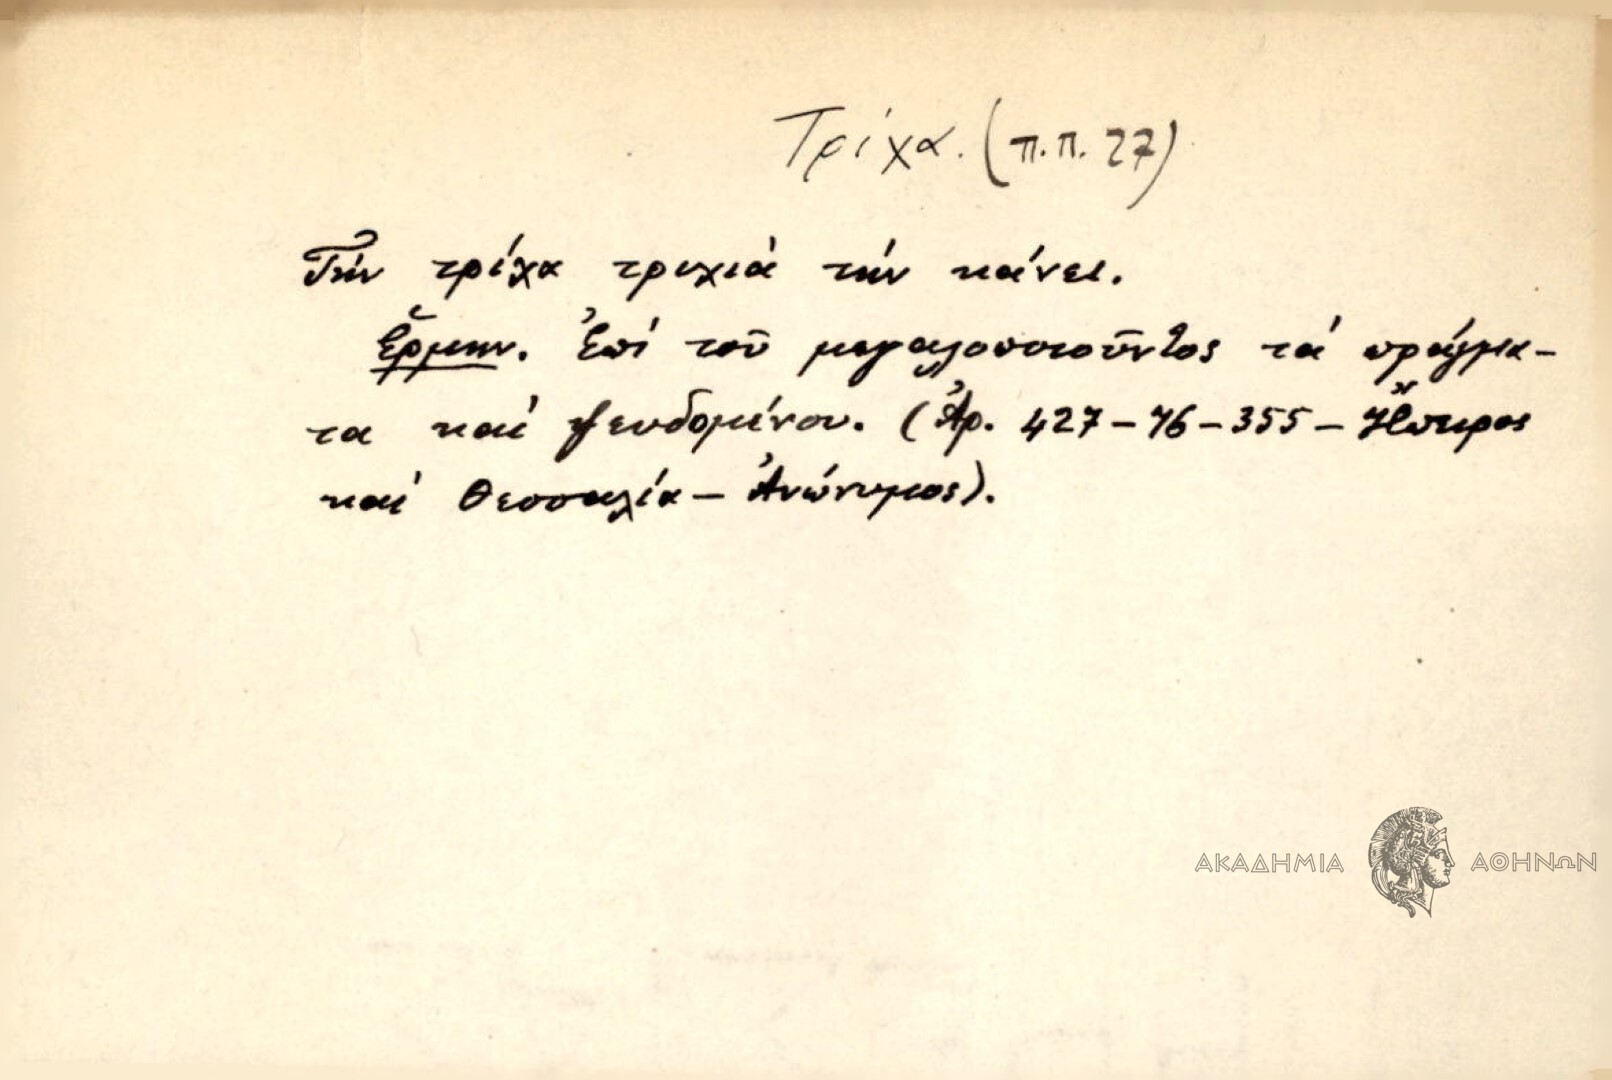 Τρίχα. (π.π. 27)
Τήν τρίχα τριχιά τήν κάνει.
Ἑρμην. Ἐπί τοῦ μεγαλοποιοῦντος τά πράγμα-
τα καί ψευδομένου. (Ἀρ. 427-76-355-Ἤπειρος
καί Θεσσαλία - Ἀνώνυμος).
ΑΚΑΔΗΜΙΑ ΑΘΗΝΩΝ